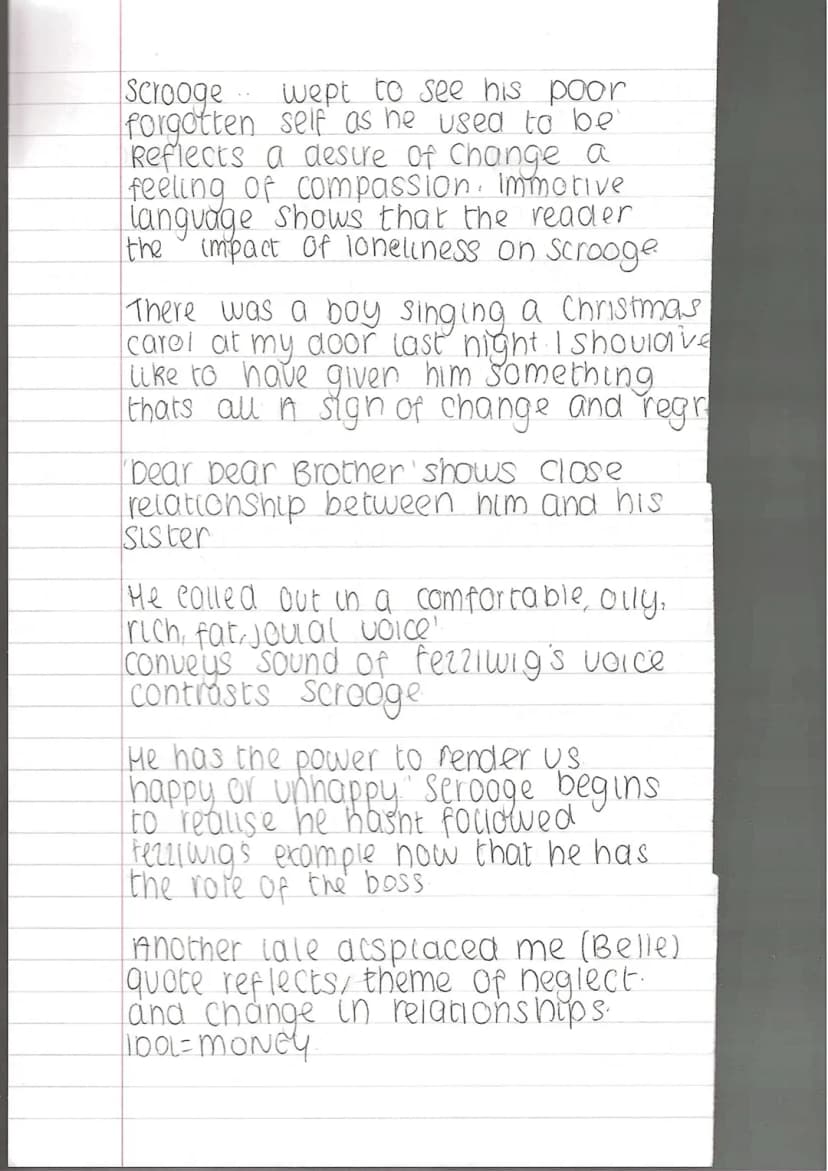 Scrooge .. wept to see his poor
forgotten self as he used to be
Reflects a desire of Change a
feeling of compassion. immotive
language shows that the reader
the impact of loneliness on Scrooge
There was a boy singing a Christmas
carol at my door last night. I should've
like to have given him something
thats all A sign of change and regr
'Dear Dear Brother' shows close
relationship between him and his
sister
He called out in a comfortable, oily,
rich, fat, jovial voice'
conveys sound of fezziwig's voice
contrasts Scrooge
He has the power to render us
happy or unhappy" Scrooge begins
to realise he hasnt followed
fezziwigs example now that he has
the role of the boss
Another idle dcsplaced me (Belle)
quote reflects, theme of neglect.
and change in relationships.
idol=MONEY